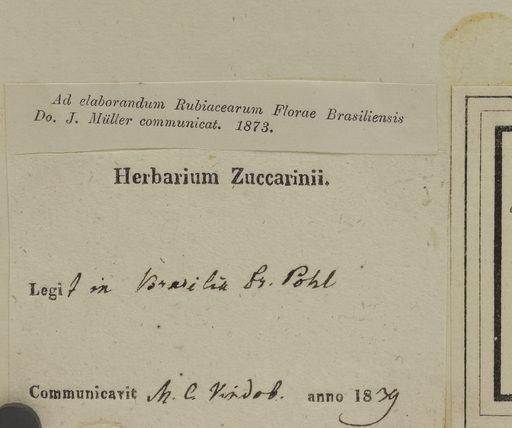 Ad elaborandum Rubiacearum Florae Brasiliensis
Do. J. Müller communicat. 1873.
Herbarium Zuccarinii.
Legit in Brasilia Dr. Pohl
Communicavit M. C. Vindob. anno 1839